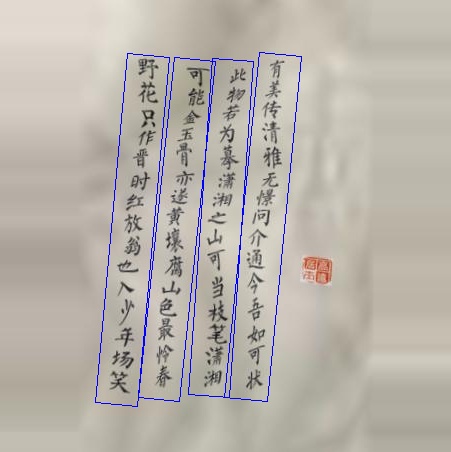 有美传清雅无憬问介通今吾如可状
此物若为摹潇湘之山可当枝笔潇湘
可能金玉骨亦遂黄壤腐山色最怜春
野花只作晋时红放翁也入少年场笑